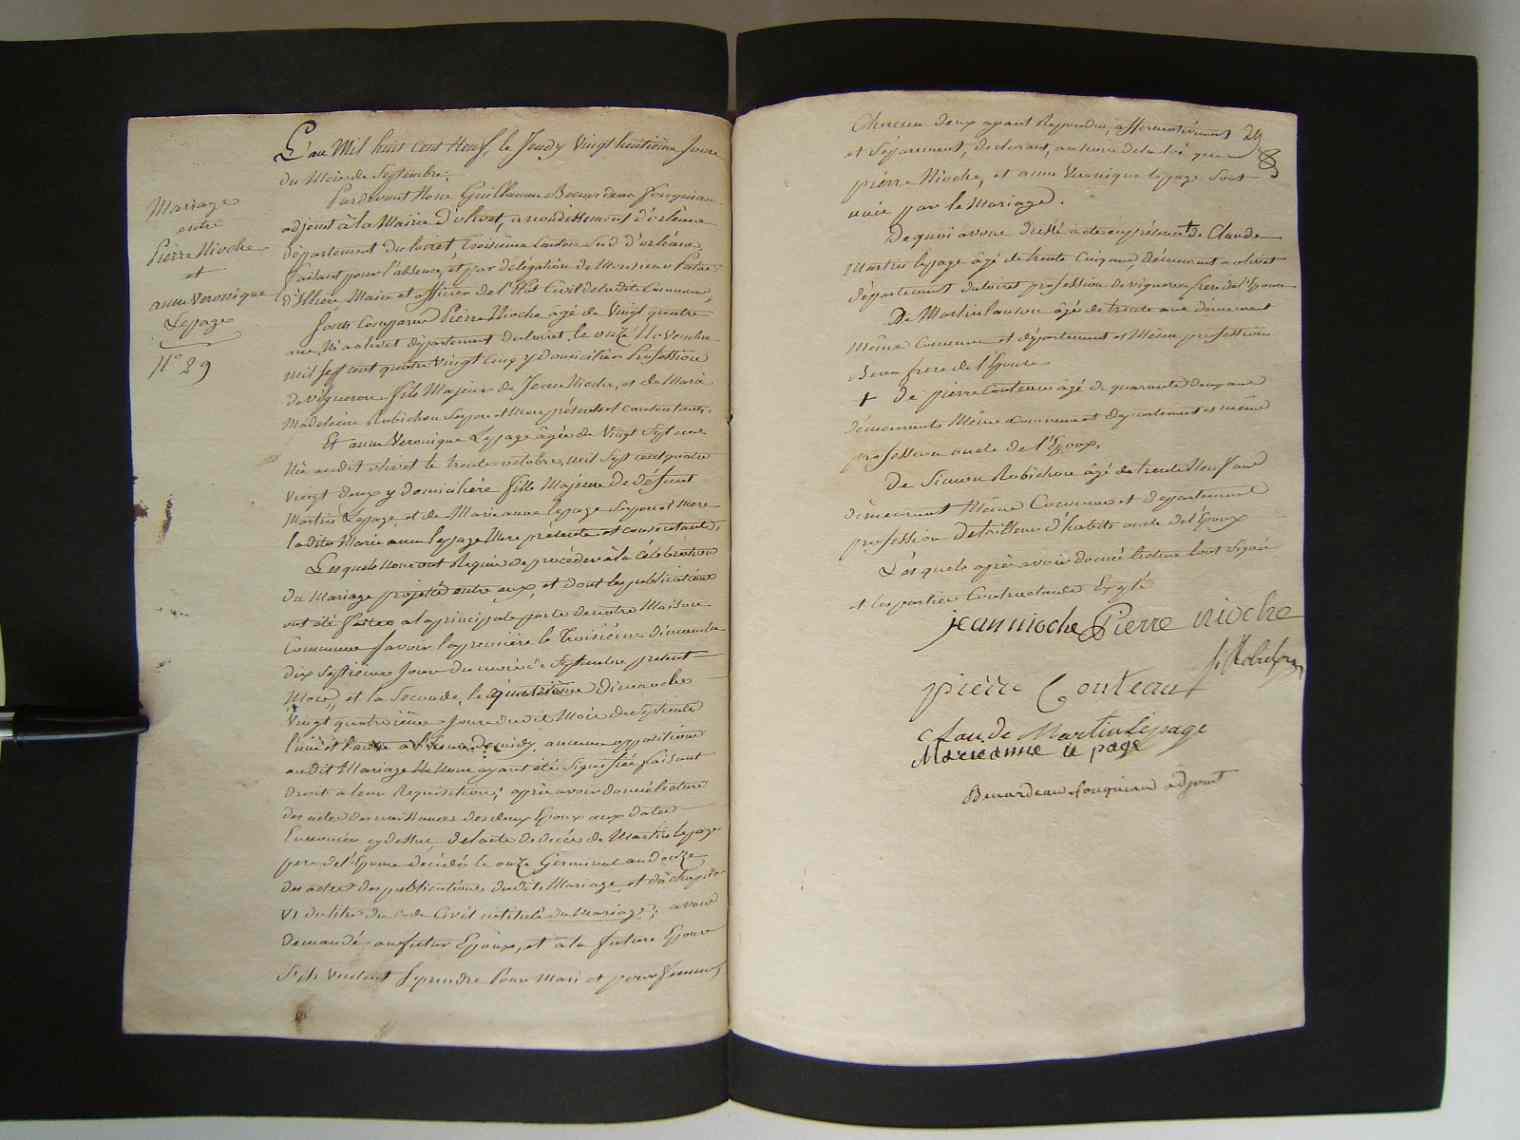 Mariage
entre
Pierre Nioche
et
anne Veronique
Lepage
N° 29
L'an Mil huit cent Neuf, le Jeudy Vingt huitieme Jour
du Mois de Septembre.
Pardevant Nous Guillaume Benardeau Fouquiau
adjoint à la Mairie d'olivet, arrondissement d'orléans
Département du loiret, troisieme Canton Sud d'orléans,
faisant pour l'absence, et par délégation de Monsieur
Maire et officier de l'Etat Civil de ladite Commune,
Sont Comparus Pierre Nioche âgé de Vingt quatre
ans, Né a olivet département du loiret le onze Novembre
mil sept cent quatre vingt cinq y domicilié Profession
de vigneron fils Majeur de Jean Nioche, et de Marie
Madeleine Robichon Ses pere et Mere présents et consentants.
Et anne Veronique Lepage âgée de Vingt Sept ans
Née audit olivet le trente octobre mil sept cent quatre
vingt deux y domiciliée fille Majeure de défunt
Martin Lepage, et de Marie anne lepage Ses pere et Mere
ladite Marie anne lepage Mere présente et consentante,
Lesquels Nous ont Requis de procéder à la célébration
du Mariage projetté entre eux, et dont les publications
ont été faites a la principale porte de notre Maison
Commune Savoir la premiere le troisieme dimanche
dix Septieme Jour du mois de Septembre présent
Mois, et la Seconde, le quatrieme Dimanche
Vingt quatrieme Jour dudit Mois de Septembre
l'une et l'autre a l'heure de midy, aucune opposition
audit Mariage Ne Nous ayant été Signifiée faisant
droit à leur Requisition; après avoir donné lecture
des actes de naissances des deux Epoux aux dates
Enoncées cy dessus, de l'acte de décès de Martin lepage
pere de l'Epouse décédé le onze Germinal an douze
des actes des publications dudit Mariage, et du chapitre
VI du titre du Code Civil intitulé du Mariage; avons
demandé au futur Epoux, et a la future Epouse
S'ils Veulent Se prendre Pour Mari et pour femme,
29
Chacun deux ayant Repondu, affirmativement
et Séparement, declarons, au nom de la loi que
pierre Nioche, et anne Veronique lepage Sont
unis par le Mariage.
De quoi avons dressé acte en présence de Claude
Martin lepage âgé de trente cinq ans, démeurant a olivet
département du loiret profession de vigneron frere de l'Epouse
De Martin âgé de trente ans démeurant
Même Commune et département et Même profession
Beau frere de l'Epouse
+ de pierre Couteau âgé de quarante deux ans
démeurant Même Commune et département et même
profession oncle de l'Epoux.
De Simon Robichon âgé de trente Neuf ans
démeurant Même Commune et departement
profession de tailleur d'habits oncle de l'Epoux
Lesquels après avoir donné lecture l'ont Signés
et les parties Contractantes
jean nioche Pierre nioche
S. Robichon
pierre Couteau
Claude Martin Lepage
Marieanne le page
Benardeau fouquiau adjoint